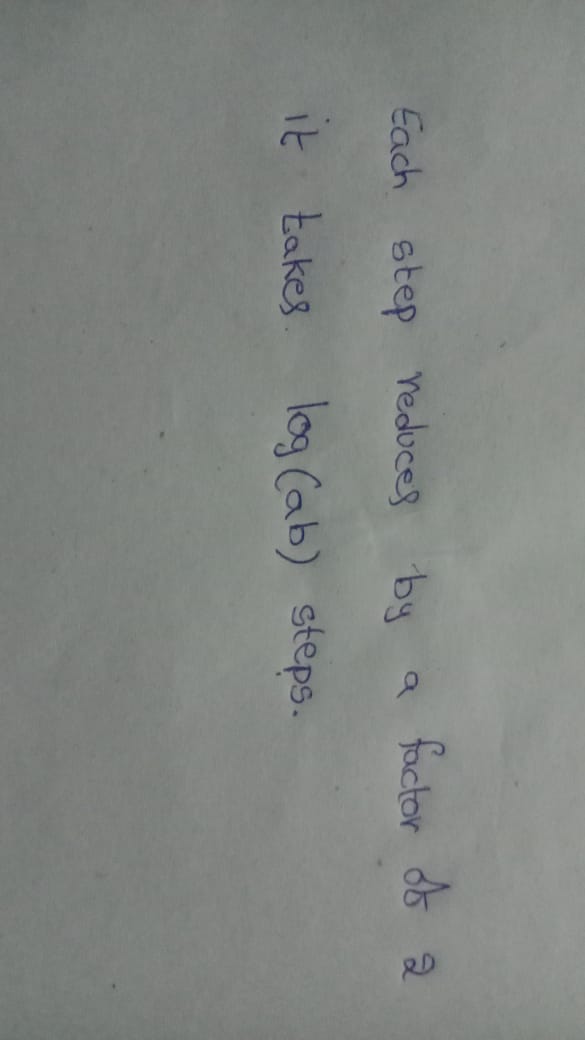 Each step reduces by a factor of 2
it takes log(ab) steps.